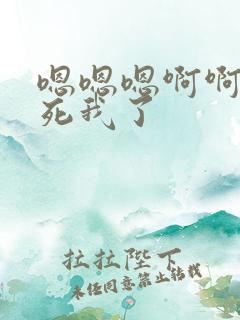 嗯嗯嗯啊啊
死我了
拉拉陛下
未经同意禁止转载